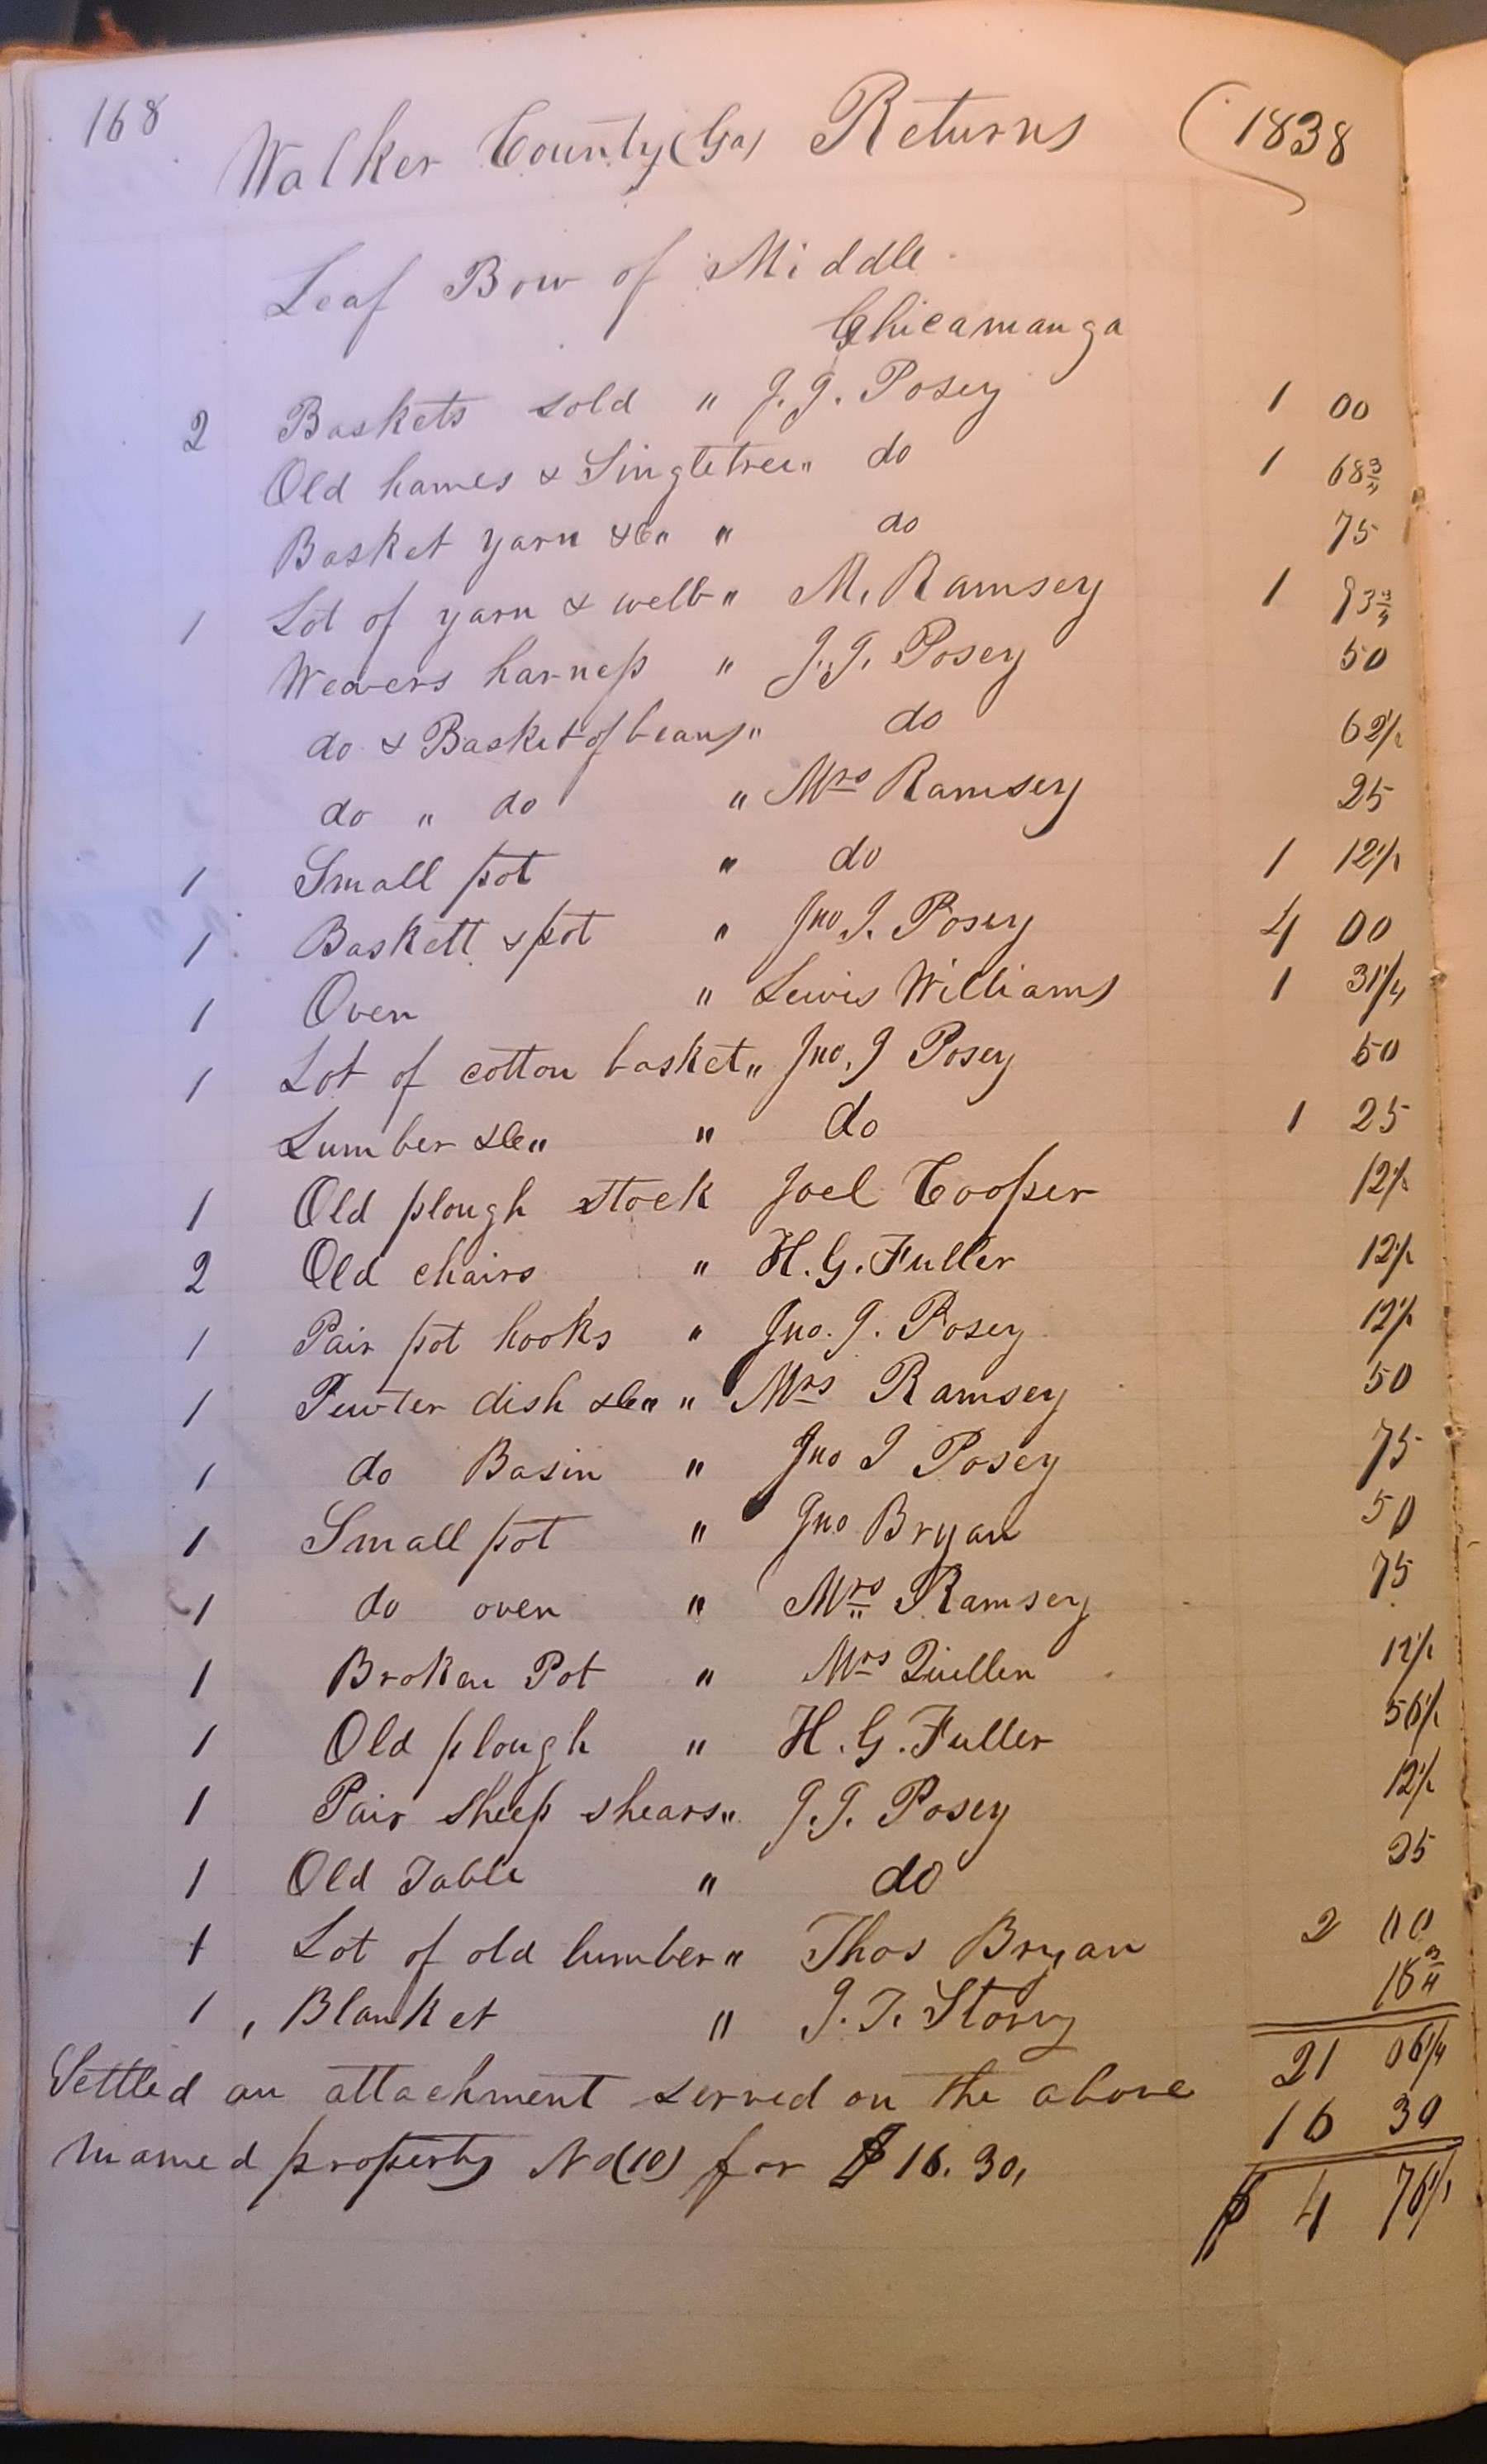 168 Walker County (Ga) Returns (1838
Leaf Bow of Middle
Chicamauga
2 Baskets sold " J. J. Posey 1 00
Old hames & Singletree " do 1 68 3/4
Basket yarn &c " " do 75
1 Lot of yarn & " M. Ramsey 1 93 3/4
Weavers harness " J. J. Posey 50
do & Basket of beans " do 62 1/2
do " do " Mrs Ramsey 25
1 Small pot " do 1 12 1/2
1 Baskett & pot " Jno J. Posey 4 00
1 Oven " Lewis Williams 1 31 1/4
1 Lot of cotton basket " Jno. J Posey 50
Lumber &c " " do 1 25
1 Old plough stock Joel Cooper 12 1/2
2 Old chairs " H. G. Fuller 12 1/2
1 Pair pot hooks " Jno. J. Posey 12 1/2
1 Pewter dish &c " " Mrs Ramsey 50
1 do Basin " Jno J Posey 75
1 Small pot " Jno Bryan 50
1 do oven " Mrs Ramsey 75
1 Broken Pot " Mrs Quillen 12 1/2
1 Old plough " H. G. Fuller 56 1/2
1 Pair Sheep shears " J. J. Posey 12 1/2
1 Old Table " do 25
1 Lot of old lumber " Thos Bryan 2 00
1 Blanket " J. T. Story 18 3/4
21 06 1/4
Settled an attachment served on the above
16 30
named property No (10) for $16.30,
$ 4 76 1/2